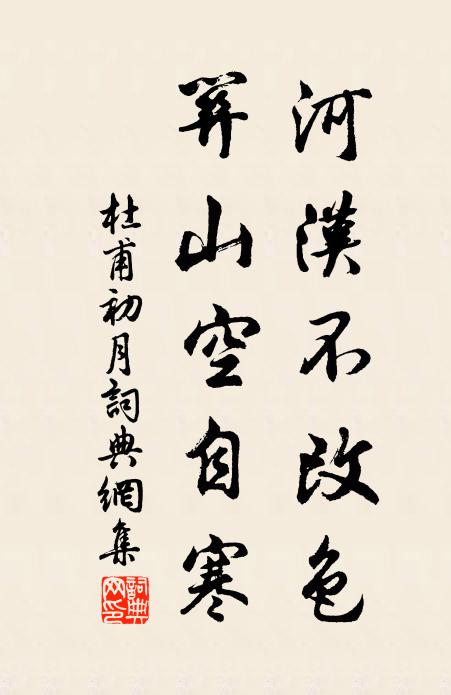 河漢不改色
關山空自寒
杜甫初月詞典網集
詞典网印